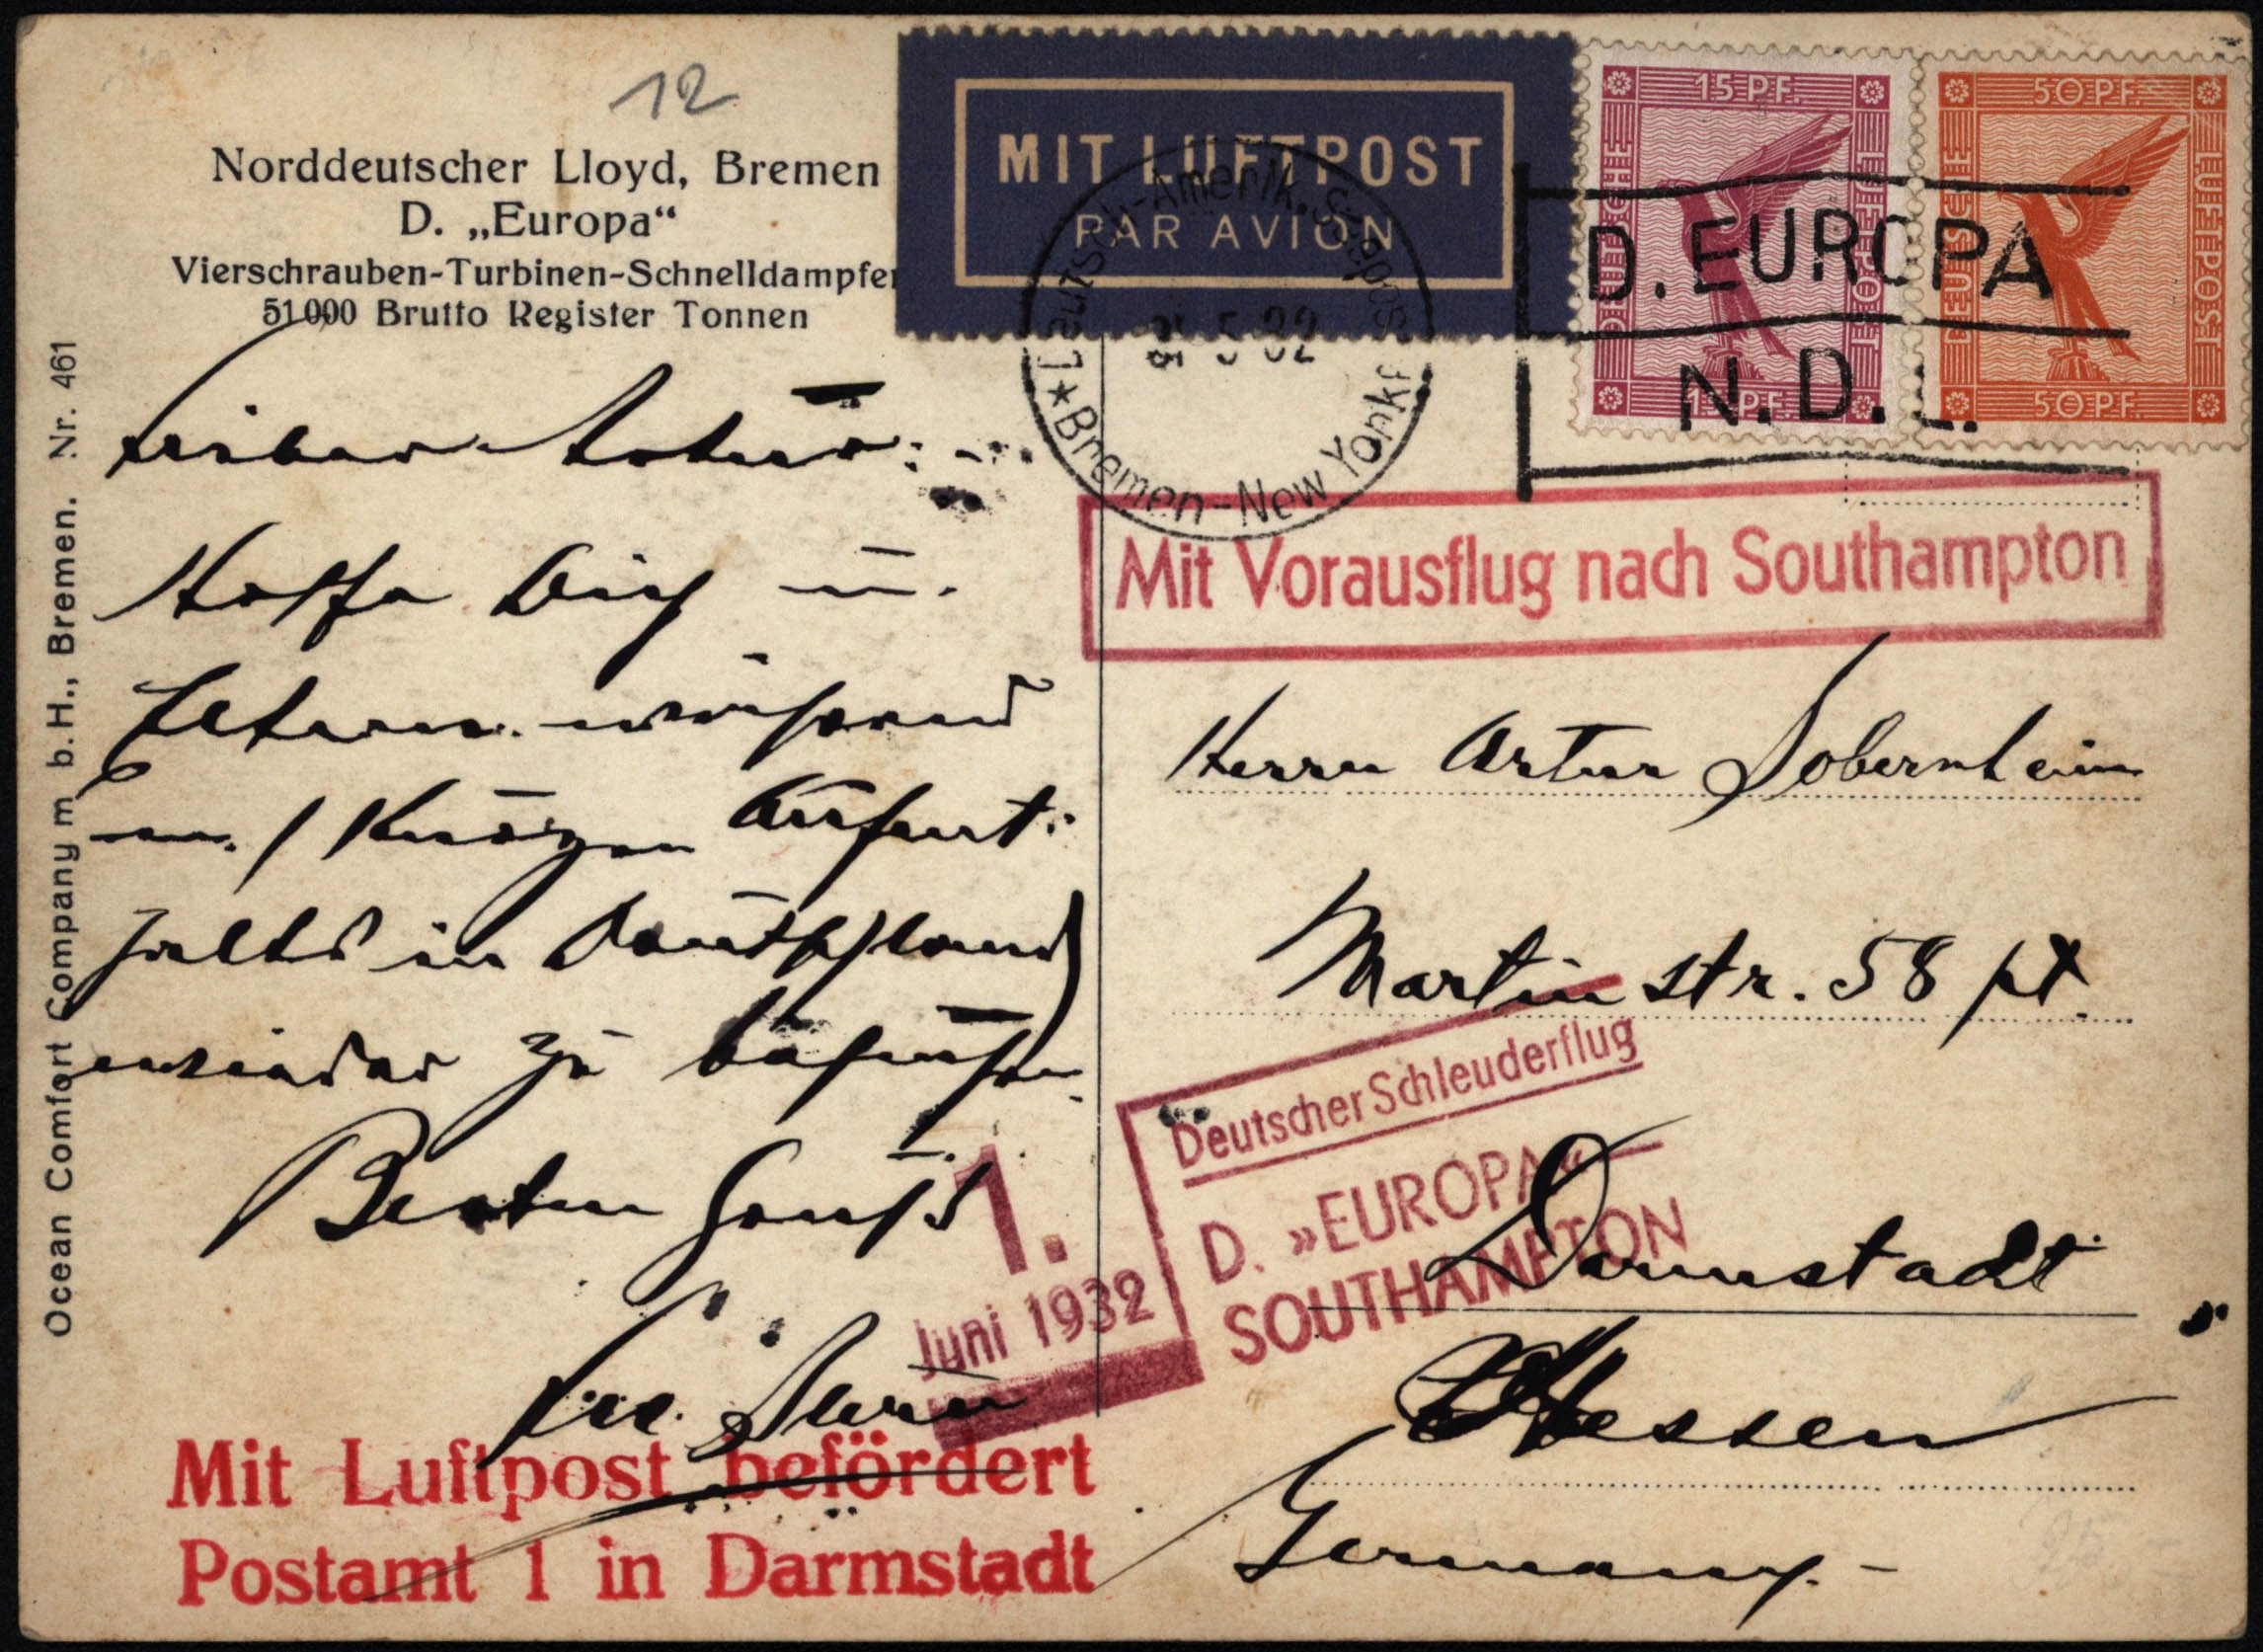 12
Norddeutscher Lloyd, Bremen
D. „Europa“
Vierschrauben-Turbinen-Schnelldampfer
51000 Brutto Register Tonnen
MIT LUFTPOST
PAR AVION
Deutsch-Amerik. Seepost
31 5 32
★ Bremen-New York
15 PF.
DEUTSCHE LUFTPOST
15 PF.
50 PF.
DEUTSCHE LUFTPOST
50 PF.
D. EUROPA
N.D.L.
Mit Vorausflug nach Southampton
Lieber Artur:
Hoffe Dich u.
Eltern während
m. / kurzen Aufent-
halts in Deutschland
wieder zu besuchen
Besten Gruß
Herrn Artur Sobernheim
Martin str. 58 pt.
Darmstadt
Hessen
Germany.
1.
Juni 1932
Deutscher Schleuderflug
D. »EUROPA« —
SOUTHAMPTON
Mit Luftpost befördert
Postamt 1 in Darmstadt
Ocean Comfort Company m b. H., Bremen. Nr. 461